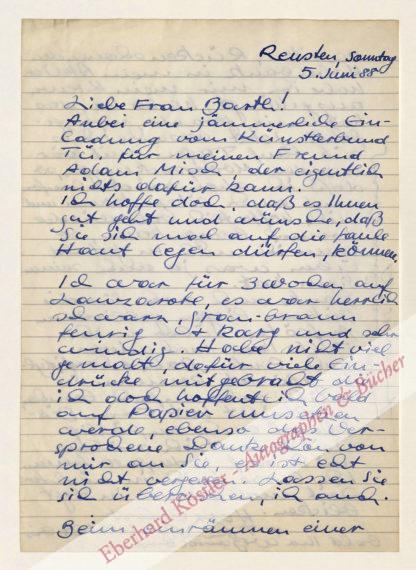 Reusten, Sonntag
5. Juni 88
Liebe Frau Barth!
Anbei eine jämmerliche Ein-
ladung vom Künstlerbund
Tü. für meinen Freund
Adam Misch, der eigentlich
nichts dafür kann.
Ich hoffe doch, daß es Ihnen
gut geht und wünsche, daß
Sie sich mal auf die faule
Haut legen dürfen, können.
Ich war für 3 Wochen auf
Lanzarote, es war herrlich
schwarz, grau-braun
feurig + karg und sehr
windig. Habe nicht viel
gemalt, dafür viele Ein-
drücke mitgebracht die
ich doch hoffentlich bald
auf Papier umsetzen
werde, ebenso das Ver-
sprochene Dankeschön von
mir an Sie, es ist echt
nicht vergessen. Lassen Sie
sich überraschen, ich auch.
Beim ausräumen einer
Eberhard Köstler Autographen & Bücher